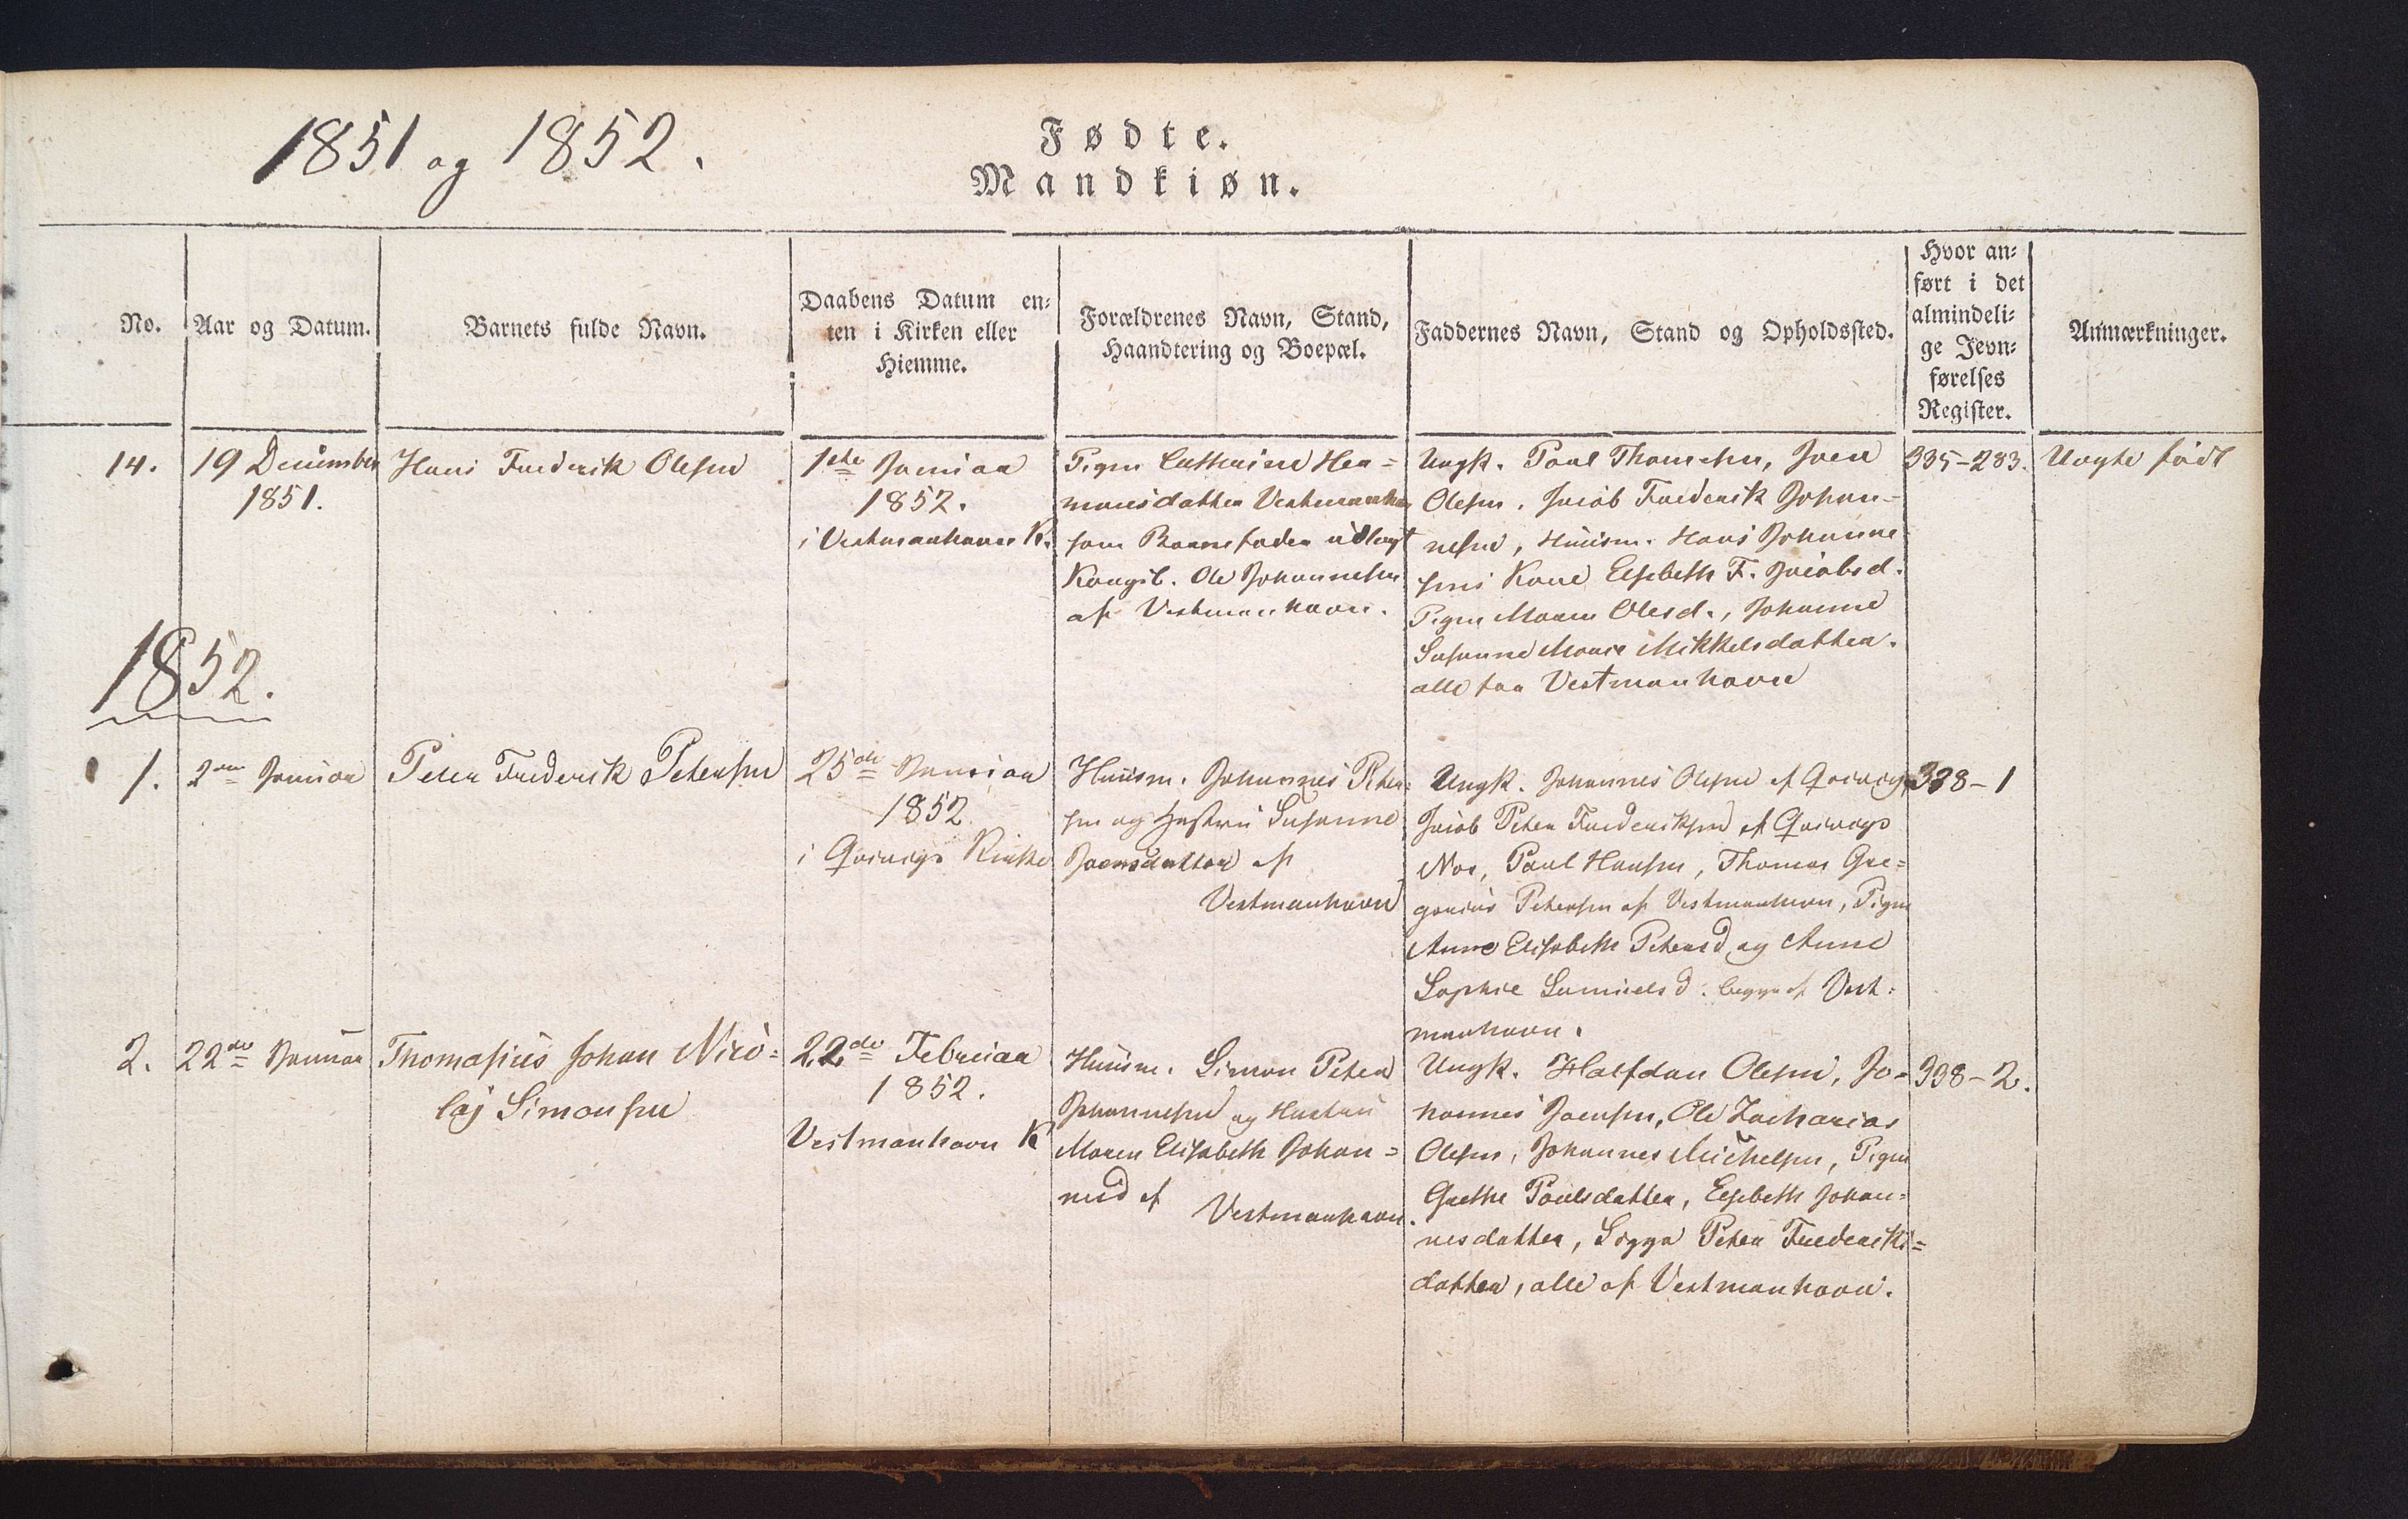 1851 og 1852.
Fødte.
Mandkiøn.
No.
Aar og Datum.
Barnets fulde Navn.
Daabens Datum en-
ten i Kirken eller
Hiemme.
Forældrenes Navn, Stand,
Haandtering og Boepæl.
Faddernes Navn, Stand og Opholdssted.
Hvor an-
ført i det
almindeli-
ge Jevn-
førelses
Register.
Anmærkninger.
14.
19 December
1851.
Hans Frederik Olesen
1ste Januar
1852.
i Vestmanhavns K.
Pigen Cathrine Her=
mansdatter Vestmanhavn
som Barnefader udlagt
Ungk. Ole Johannesen
af Vestmanhavn.
Ungk. Poul Thomesen, Joen
Olesen, Jacob Frederik Johan-
nesen, Huusm. Hans Johanne
sens Kone Elsebeth F. Jacobsd.
Pigen Maren Olesd., Johanne
Susanne Marie Mikkelsdatter.
alle fra Vestmanhavn
335-283.
Uægte født
1852.
1.
2den Januar
Peter Frederik Petersen
25de Januar
1852
i Qvivigs Kirke
Huusm. Johannes Peter=
sen og Hustru Susanne
Joensdatter af
Vestmanhavn
Ungk. Johannes Olesen af Qvivig,
Jacob Peter Frederiksen af Qvivigs
Nor, Poul Hansen, Thomas Gre=
gorius Petersen af Vestmanhavn, Pigen
Anne Elisabeth Petersd. og Anne
Sophie Samuelsd. begge af Vest=
manhavn.
338-1
2.
22de Januar
Thomasius Johan Nico=
laj Simonsen
22de Februar
1852.
Vestmanhavn K
Huusm. Simon Peter
Johannesen og Hustru
Maren Elisabeth Johan=
nesd af
Vestmanhavn.
Ungk. Halfdan Olesen, Jo=
hannes Joensen, Ole Zacharias
Olesen, Johannes Michelsen, Pigen
Grethe Poulsdatter, Elsebeth Johan=
nesdatter, Sigga Peter Frederiks=
datter, alle af Vestmanhavn.
338-2.